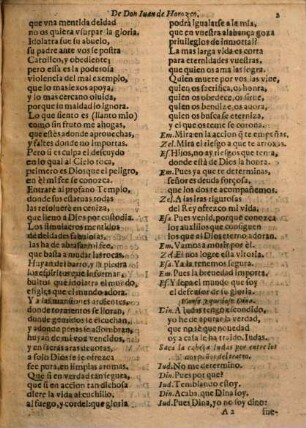 De Don Iuan de Horozco.
2
que vna mentida deldad
no os quiera vsurpar la gloria.
Idolatra fue su abuelo,
su padre ante vos se postra
Catolico, y obediente;
pero essa es la poderosa
violencia del mal exemplo,
que lo mas proximo apoya,
y lo mas cercano oluida,
porque su maldad lo ignora.
Lo que siento es (llanto mio)
como sin fruto me ahogas,
que estès donde aprouechas,
y faltes donde no importas.
Pero si es culpa el descuydo
en lo qual al Cielo toca,
primero es Dios que el peligro,
en èl mi fee se conozca.
Entrarè al profano Templo,
donde sus estatuas todas
las resoluerè en ceniza,
que lleuo à Dios por custodia.
Los simulacros
las ha de abrasar mi fee,
que baila muda
Huyan de
bultos que idolatra el mundo,
y a las
donde tormentos le lloran,
donde a penas
huyan de mi
y en sacras aras deuotas,
a solo Dios se le ofrezca
fee pura, en limpias aromas.
Que si en verdad tan segura,
que si en accion tan dichosa
diere la vida al cuchillo,
al fuego, y cordel, que gloria
podrà igualarse a la mia,
que en vuestra alabança goza
priuilegios de inmortal?
La mas larga vida es corta
para eternidades vuestras,
que quien os ama las logra.
Quien muere por vos las viue,
quien os sacrifica, os honra,
quien os obedece, os sirue,
quien os bendize, os adora,
quien os busca se eterniza,
y el que os teme se corona.
Em. Mira en la accion q̃ te empeñas.
Zel. Mira el riesgo a que te arrojas.
Ef. Hijos, no ay riesgos que tema,
donde està de Dios la honra.
Em. Pues ya que te determinas,
señor es deuda forçosa,
que los dos te acompañemos.
Zel. A las iras rigurosas
del Rey ofrezco mi vida.
Ef. Pues venid, porque conozca
los auxilios que configuen
los que a Dios eterno adoran.
Em. Vamos a morir por èl.
Zel. El nos logre esta vitoria.
Ef. Ya la tenemos segura.
Em. Pues la breuedad importa.
Ef. Y sepa el mundo que soy
el defensor de su gloria.
Vanse, y sale Dina.
Din. A Iudas tengo escondido,
oy he de apurar la verdad,
que no sè que nouedad
oy a casa le ha traido. Iudas.
Saca la cabeça Iudas por entre los
paños del teatro.
Iud. No me determino.
Din. Pues por què?
Iud. Temblando estoy.
Din. Acaba, que Dina soy.
Iud. Pues Dina, yo no soy dino:
A 2
fue-